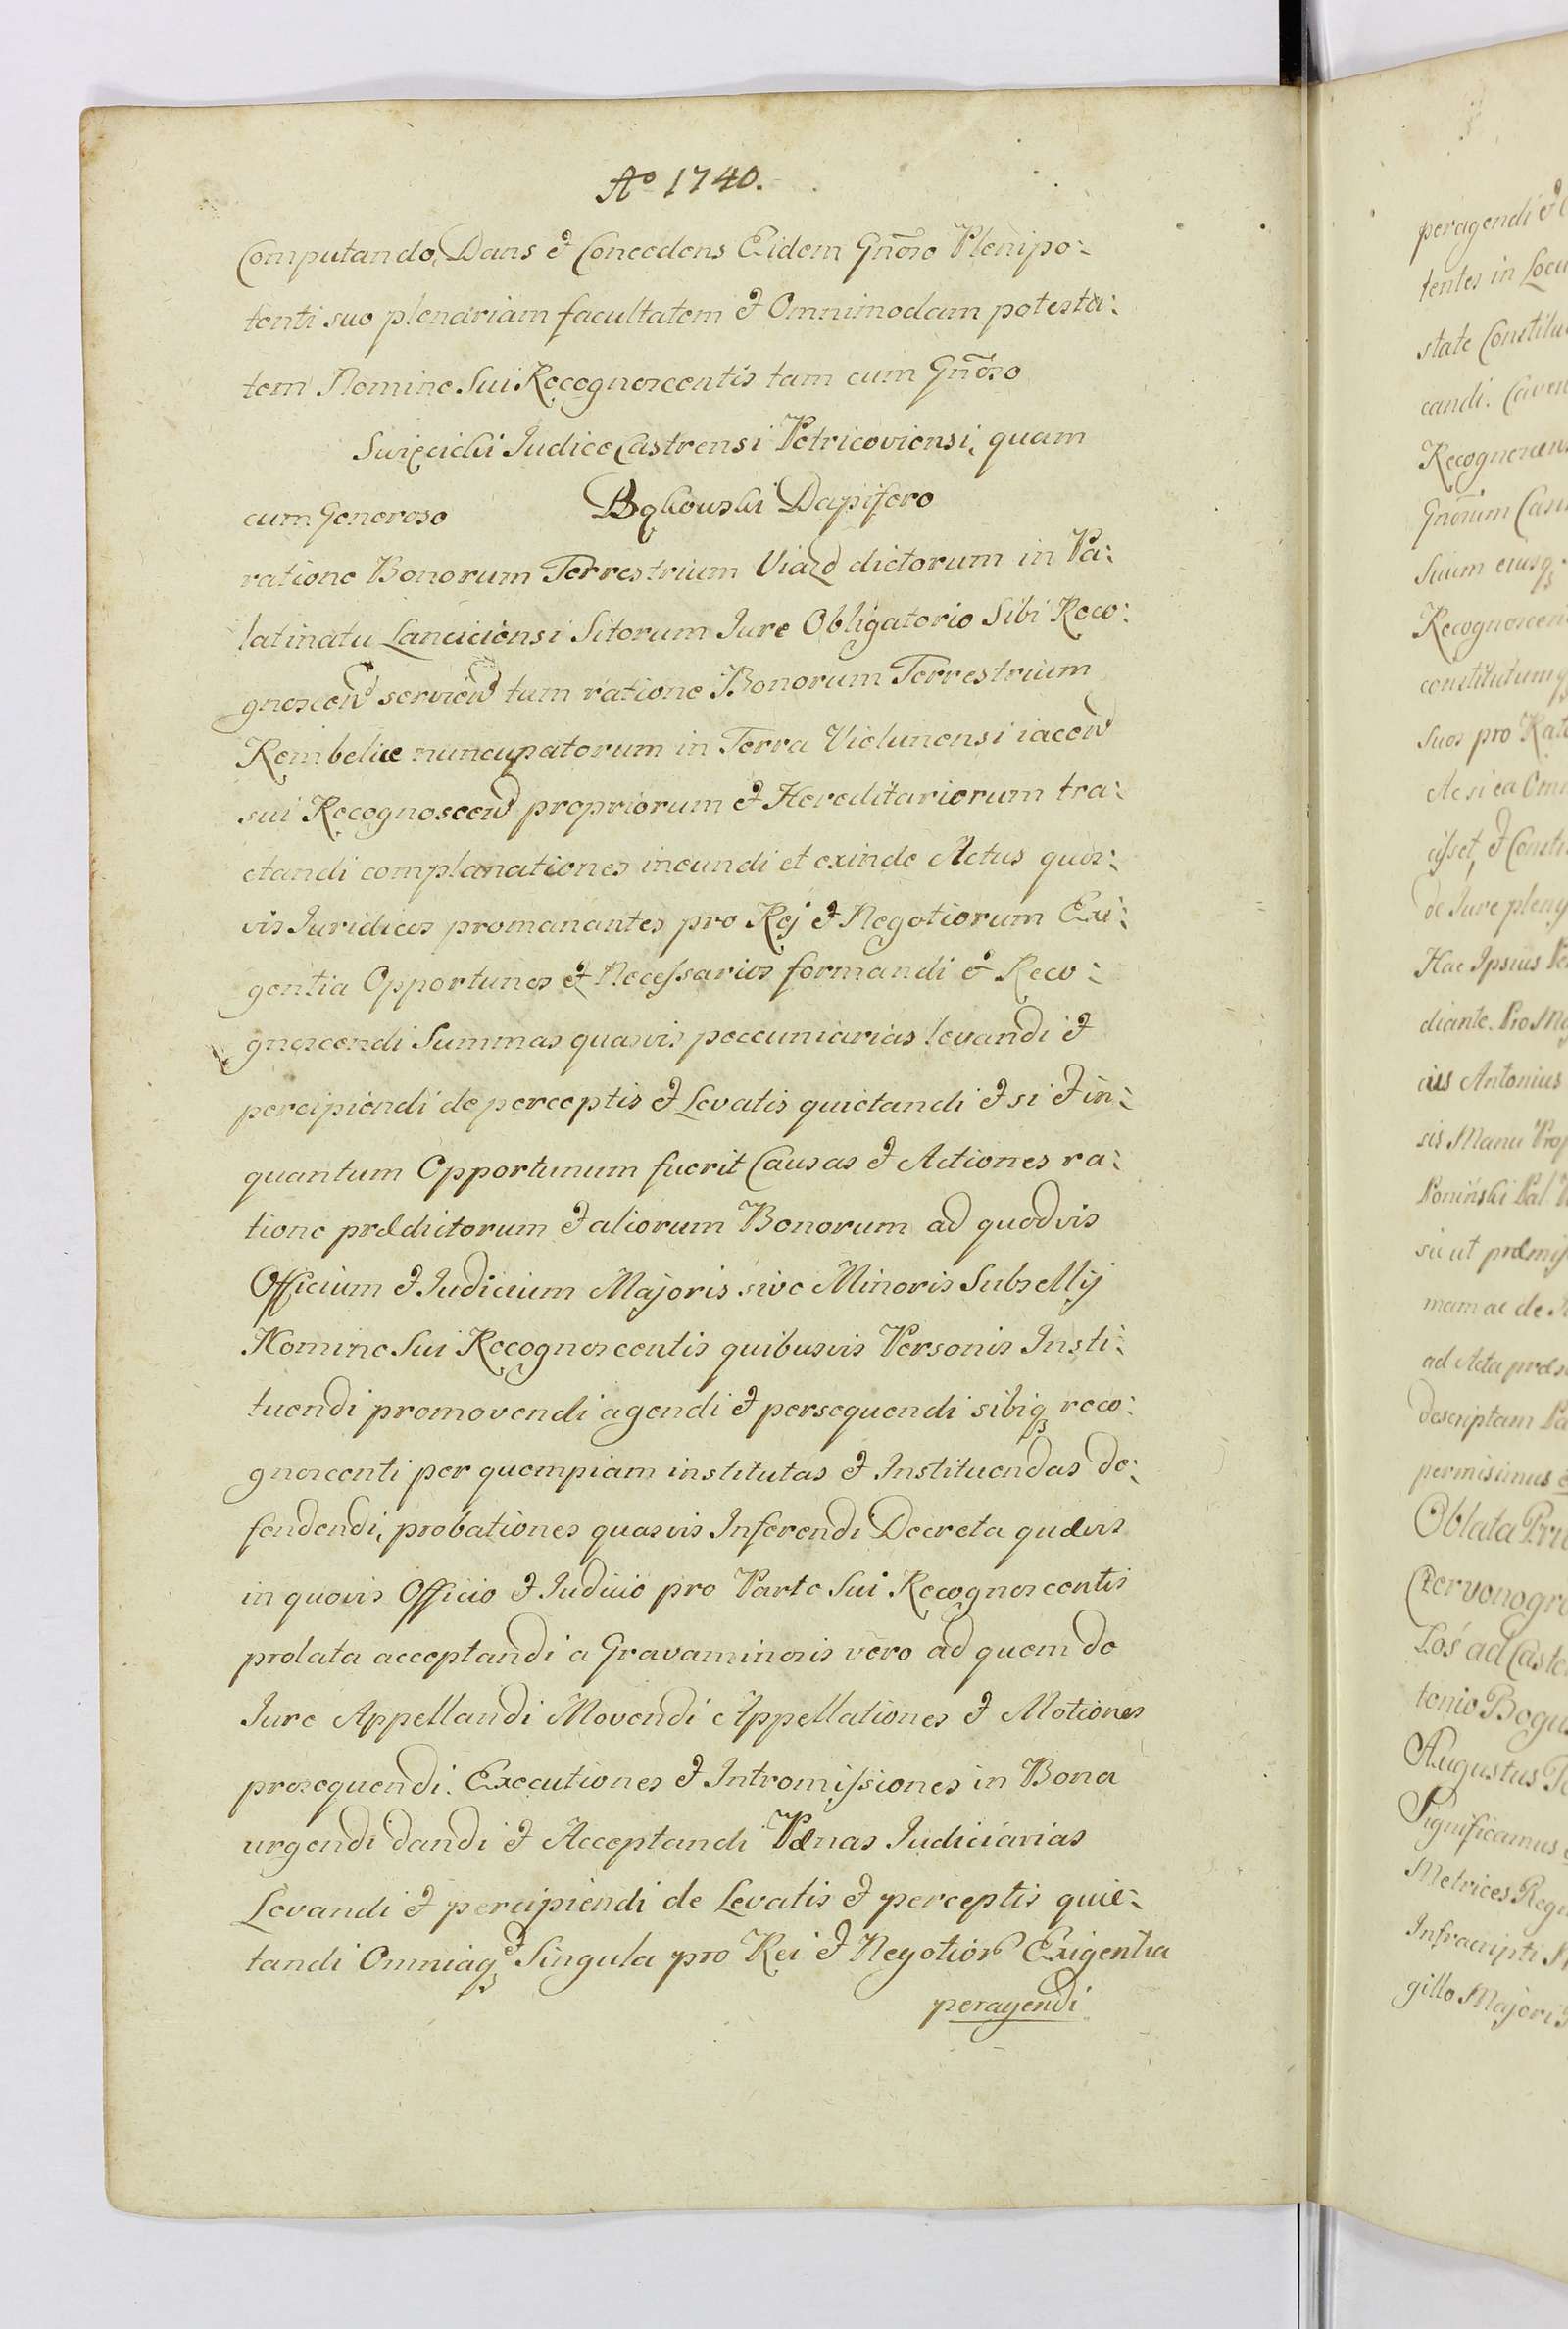 Aº 1740.
Computando, Dans & Concedens Eidem Gnõso Plenipo:
tenti suo plenariam facultatem & Omnimodam potesta:
tem Nomine Sui Recognoscentis tam cum Gnõso
Swięcicki Judice Castrensi Petricoviensi, quam
cum Generoso Bąkowski Dapifero
ratione Bonorum Terrestrium Viazd dictorum in Pa:
latinatu Lanciciensi Sitorum Jure Obligatorio Sibi Reco:
gnoscen servien tum ratione Bonorum Terrestrium
Rembelice nuncupatorum in Terra Vielunensi iacen
sui Recognoscen propriorum & Hereditariorum tra:
ctandi complanationes ineundi et exinde Actus quos:
vis Juridicos promanantes pro Rej & Negotiorum Exi:
gentia Opportunos & Necessarios formandi & Reco:
gnoscendi Summas quasvis peccuniarias levandi &
percipiendi de perceptis & Levatis quietandi & si & in:
quantum Opportunum fuerit Causas & Actiones ra:
tione prædictorum & aliorum Bonorum ad quodvis
Officium & Judicium Majoris sive Minoris Subsellij
Nomine Sui Recognoscentis quibusvis Personis Insti:
tuendi promovendi agendi & persequendi sibiq reco:
gnoscenti per quempiam institutas & Instituendas de:
fendendi, probationes quasvis Inferendi Decreta quævis
in quovis Officio & Judicio pro Parte Sui Recognoscentis
prolata acceptandi a Gravaminosis vero ad quem de
Jure Appellandi Movendi Appellationes & Motiones
prosequendi. Executiones & Intromissiones in Bona
urgendi dandi & Acceptandi Pænas Judiciarias
Levandi & percipiendi de Levatis & perceptis quie:
tandi Omniaq & Singula pro Rei & Negotior Exigentia
peragendi
peragendi &
tentes in Locu
state Constitu
candi. Caven
Recognoscen
Gnõsum Casi
Suum eiusq
Recognoscen
constitutumq
suos pro Rat
Ac si ea Omn
isset, & Consti
de Jure pleny
Hac Ipsius
diante. Pro
ius Antonius
sis Manu Prop
Poniński Pal
su ut præmis
mam ac de
ad Acta præs
descriptam
permisimus
Oblata Pri
Czervonogro
Łoś ad Caste
tonio Bogu
Augustus
Significamus
Metrices Regn
Infrascripti
gillo Majori